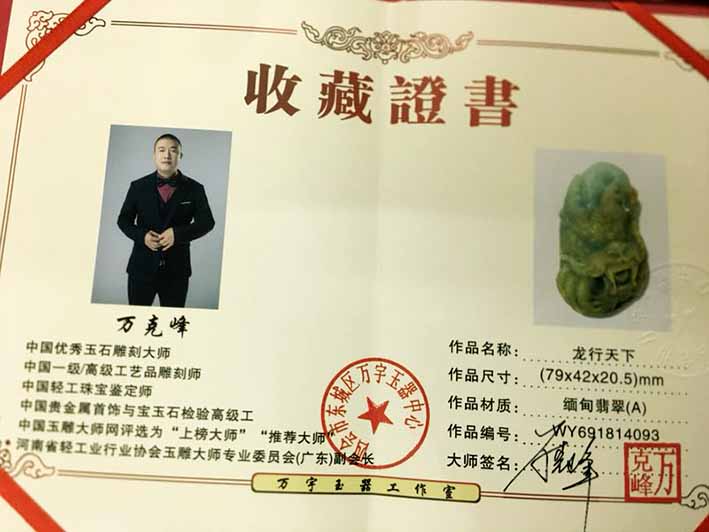 收藏證書
万克峰
中国优秀玉石雕刻大师
中国一级/高级工艺品雕刻师
中国轻工珠宝鉴定师
中国贵金属首饰与宝玉石检验高级工
中国玉雕大师网评选为“上榜大师”“推荐大师”
河南省轻工业行业协会玉雕大师专业委员会(广东)副会长
作品名称： 龙行天下
作品尺寸： (79x42x20.5)mm
作品材质： 缅甸翡翠(A)
作品编号： WY691814093
大师签名： 万克峰
万克峰
会市东城区万宇玉器中心
万宇玉器工作室